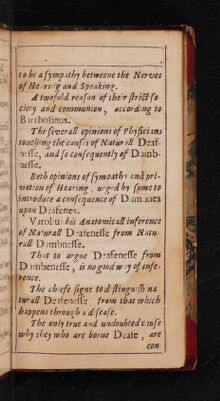 to be a sympathy betweene the Nerves
of Hearing and Speaking.
A twofold reason of their strict so-
ciety and communion, according to
Bartholinus.
The severall opinions of Physicians
touching the causes of Naturall Deaf-
nesse, and so consequently of Dumb-
nesse.
Both opinions of sympathy and pri-
vation of Hearing, urged by some to
introduce a consequence of Dumbnes
upon Deafenes.
Varolius his Anatomicall inference
of Naturall Deafenesse from Natu-
rall Dumbnesse.
That to argue Deafenesse from
Dumbenesse, is no good way of infe-
rence.
The chiefe signe to distinguish na
turall Deafenesse from that which
happens through a disease.
The only true and undoubted cause
why they who are borne Deafe, are
con